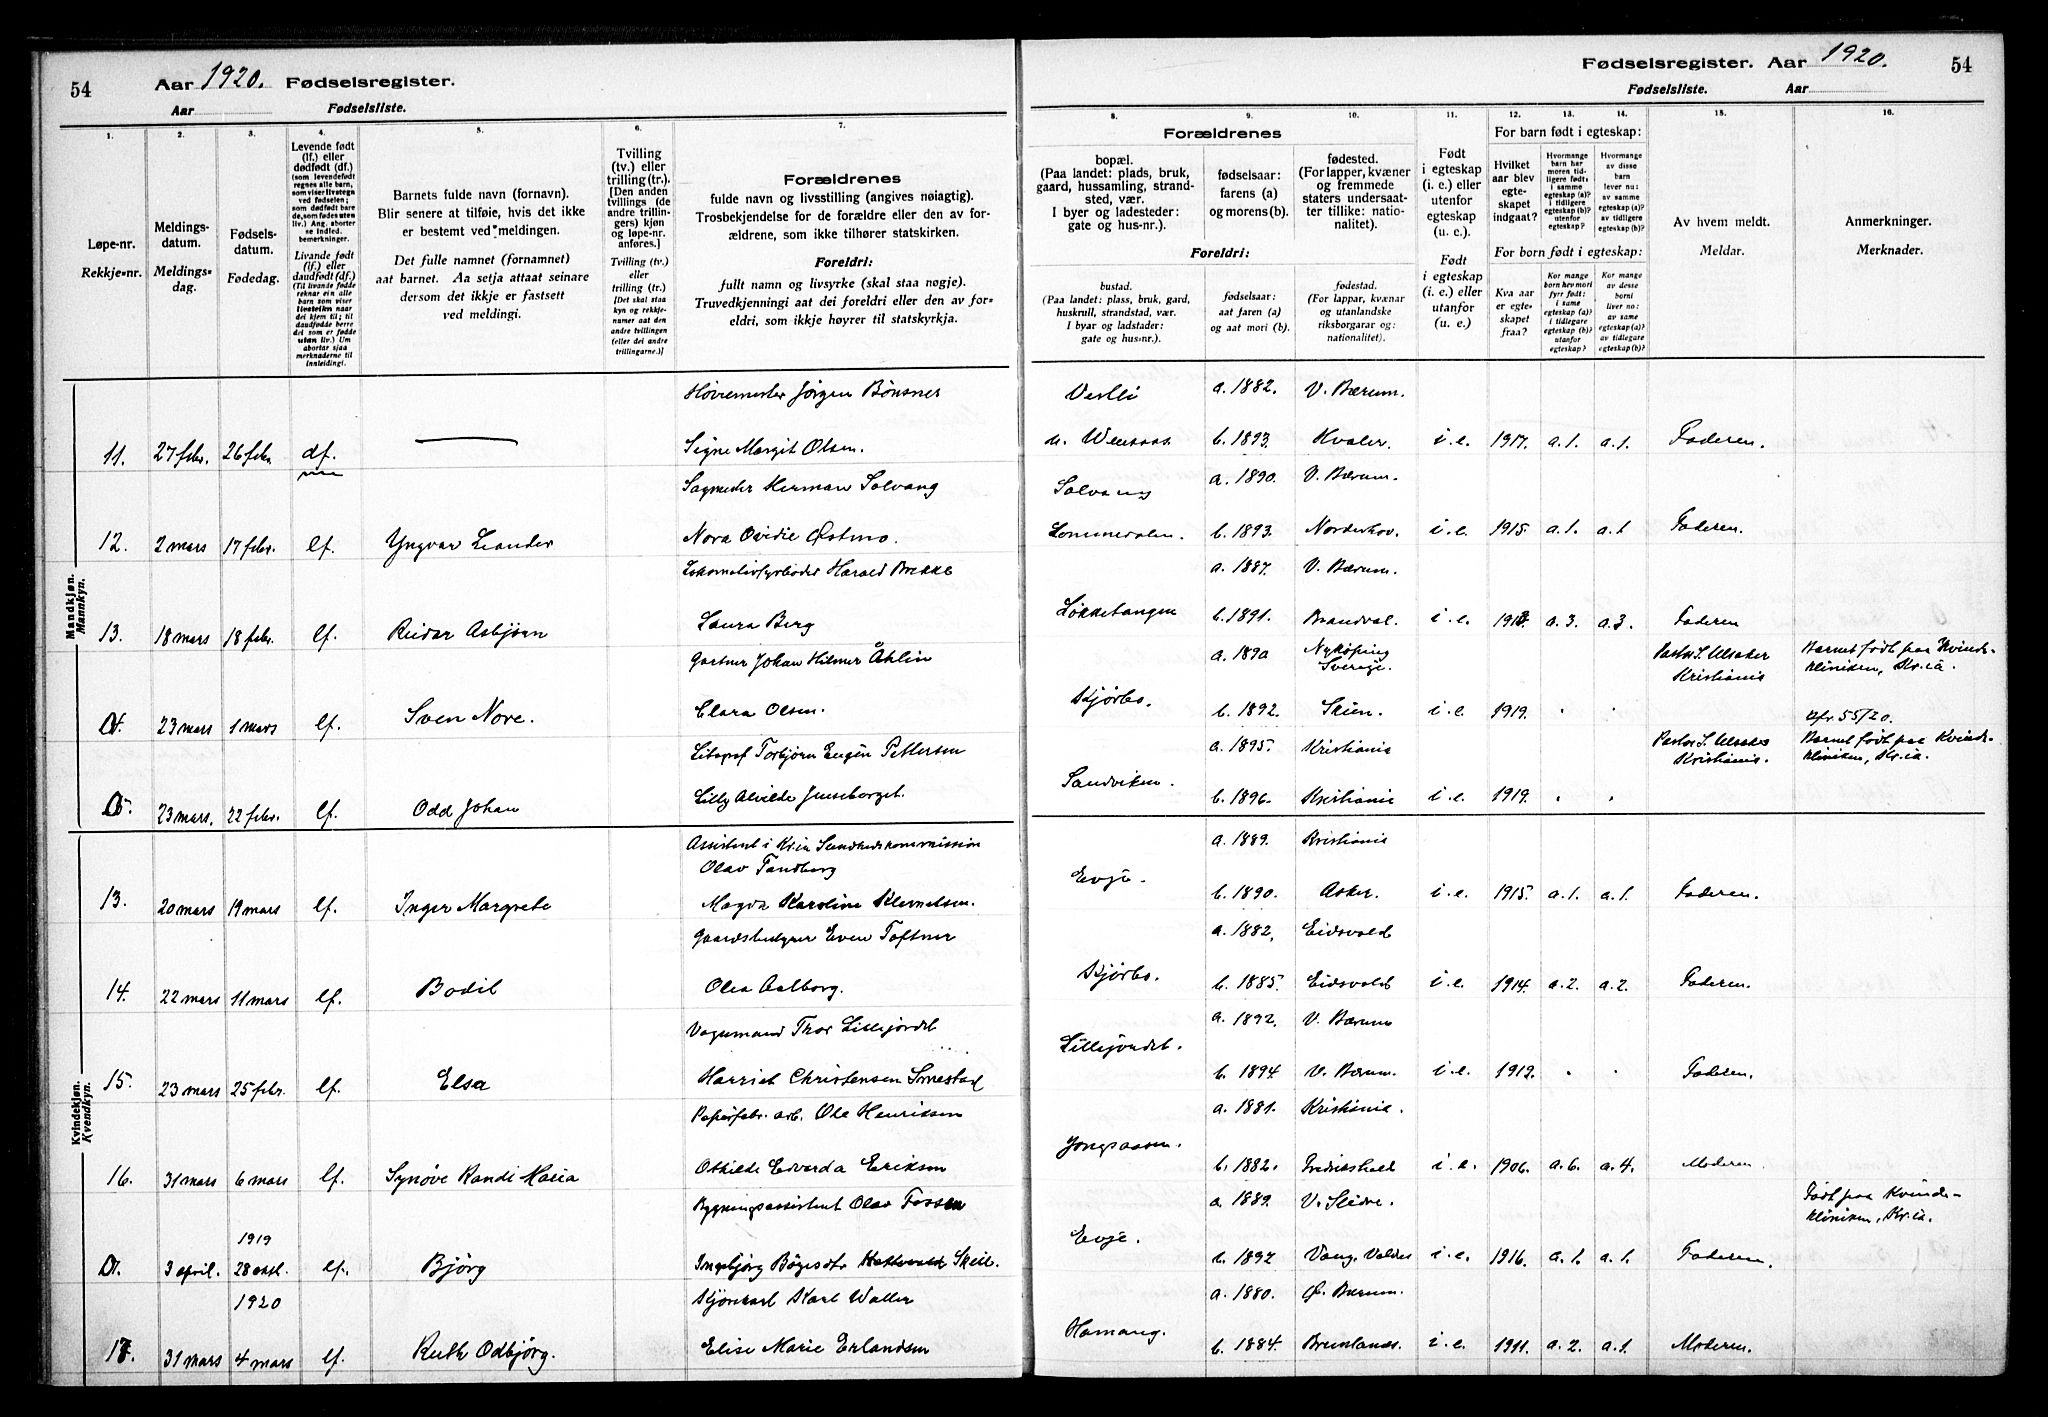 54 Aar 1920. Fødselsregister.
Aar Fødselsliste.
1. 2. 3. 4. 5. 6. 7.
Løpe-nr.
Rekkje-nr.
Meldings-
datum.
Meldings-
dag.
Fødsels-
datum.
Fødedag.
Levende født
(lf.) eller
dødfødt (df.)
(som levendefødt
regnes alle barn,
som viser livstegn
ved fødselen;
som dødfødt bare
de, som fødes uten
liv.) Ang. aborter
se indled.
bemerkninger.
Livande født
(lf.) eller
daudfødt (df.)
(Til livande fødde
reknar ein alle
barn som viser
livsteikn naar
dei kjem til; til
daudfødde berre
dei som er fødde
utan liv.) Um
abortar sjaa
merknaderne til
innleiding.
Barnets fulde navn (fornavn).
Blir senere at tilføie, hvis det ikke
er bestemt ved meldingen.
Det fulle namnet (fornamnet)
aat barnet. Aa setja attaat seinare
dersom det ikkje er fastsett
ved meldingi.
Tvilling
(tv.) eller
trilling (tr.).
[Den anden
tvillings (de
andre trillin-
gers) kjøn
og løpe-nr.
anføres.]
Tvilling (tv.)
eller
trilling (tr.)
[Det skal staa
kyn og rekkje-
numer aat den
andre tvillingen
(eller dei andre
trillingarne.)]
Forældrenes
fulde navn og livsstilling (angives nøiagtig).
Trosbekjendelse for de forældre eller den av for-
ældrene, som ikke tilhører statskirken.
Foreldri:
fullt namn og livsyrke (skal staa nøgje).
Truvedkjenningi aat dei foreldri eller den av for-
eldri, som ikkje høyrer til statskyrkja.
Fødselsregister. Aar 1920. 54
Fødselsliste. Aar
8. 9. 10. 11. 12. 13. 14. 15. 16.
Forældrenes
bopæl.
(Paa landet: plads, bruk,
gaard, hussamling, strand-
sted, vær.
I byer og ladesteder:
gate og hus-nr.).
Foreldri:
bustad.
(Paa landet: plass, bruk, gard,
huskrull, strandstad, vær.
I byar og ladstader:
gate og hus-nr.).
fødselsaar:
farens (a)
og morens (b).
fødselsaar:
aat faren (a)
og aat mori (b).
fødested.
(For lapper, kvæner
og fremmede
staters undersaat-
ter tillike: natio-
nalitet).
fødestad.
(For lappar, kvænar
og utanlandske
riksborgarar og:
nationalitet).
Født
i egteskap
(i. e.) eller
utenfor
egteskap
(u. e.).
Født
i egteskap
(i. e.) eller
utanfor
(u. e.)
For barn født i egteskap:
Hvilket
aar blev
egte-
skapet
indgaat?
Hvormange
barn har
moren tid-
ligere født:
i samme
egteskap (a)?
i tidligere
egteskap (b)?
utenfor
egteskap?
Hvormange
av disse
barn
lever nu:
av samme
egteskap (a)?
av tidligere
egteskap (b)?
For born født i egteskap:
Kva aar
er egte-
skapet
fraa?
Kor mange
born hev mori
fyrr født:
i same
egteskap (a)?
i tidlegare
egteskap (b)?
utanfor
egteskap?
Kor mange
av desse
borni
liver no:
av same
egteskap (a)?
av tidlegare
egteskap (b)?
Av hvem meldt.
Meldar.
Anmerkninger.
Merknader.
Mandkjøn.
Mannkyn.
Jørgen Bønsnes a. 1882. V. Bærum.
11. 27 febr. 26 febr. df. Signe Margit Olsen. b. 1893. Hvaler. i. e. 1917. a. 1. a. 1. Faderen.
Herman Solvang Solvang a. 1890. V. Bærum.
12. 2 mars 17 febr. lf. Yngvar Leander Nora Ovidie Østmo. Lommedalen. b. 1893. Norderhov. i. e. 1915. a. 1. a. 1 Faderen.
Lokomotivfyrbøder Harald Brekke a. 1887. V. Bærum.
13. 18 mars 18 febr. lf. Reidar Asbjørn Laura Berg Løkketangen b. 1891. Brandval. i. e. a. 3. a. 3. Faderen
Gartner Johan Hilmer Åhlin a. 1890 Nykøping Sverige. Pastor S. Ulsaker Kristiania Barnet født paa Kvinde-
klinikken, Kr.ia.
23 mars 1 mars lf. Sven Nore. Clara Olsen. Skjørbo. b. 1892. Skien. i. e. 1919. 55/20.
Litograf Torbjørn Eugén Pettersen a. 1895. Kristiania Pastor S. Ulsaker Kristiania. Barnet født paa Kvinde-
klinikken, Kr.ia.
23 mars. 22 febr. lf. Odd Johan Lilly Alvilde Sandviken. b. 1896. Kristiania i. e. 1919.
Kvindekjøn.
Kvendkyn.
Assistent i Kr.ia Sundhetskommission
Olav Tandberg a. 1889. Kristiania
13. 20 mars 19 mars lf. Inger Margrete Magda Karoline Klemetsen. Evje. b. 1890. Asker. i. e. 1915. a. 1. a. 1. Faderen.
Gaardsbestyrer Even Toftner a. 1882, Eidsvold
14. 22 mars 11 mars lf. Bodil Olea Aalborg. Skjørbo. b. 1885. Eidsvold i. e. 1914. a. 2. a. 2. Faderen.
Vognmand Thor Lillejordet a. 1892. V. Bærum
15. 23 mars 25 febr. lf. Elsa Harriet Christensen Smestad Lillejordet. b. 1894. V. Bærum. i. e. 1912. Faderen.
Papirfabr. arb. Ole Henriksen a. 1881. Kristiania.
16. 31 mars 6 mars lf. Synøve Randi Maria Othilde Edvarda Eriksen Jongsaasen. b. 1882. Fredrikshald i. e. 1906. a. 6. a. 4. Moderen.
Bygningsassistent Olav Fossen a. 1889. V. Slidre. Født paa Kvinde-
klinikken, Kr.ia.
1919
3 april. 28 okt. lf. Bjørg Ingebjørg Evje. b. 1892 Vang, Valdres i. e. 1916. a. 1. a. 1. Faderen.
1920 Karl Waller a. 1880. Ø. Bærum.
17. 31 mars 4 mars lf. Ruth Odbjørg. Elise Marie Erlandsen Hamang. b. 1884. Brunlanes. i. e. 1911. a. 2. a. 1. Moderen.